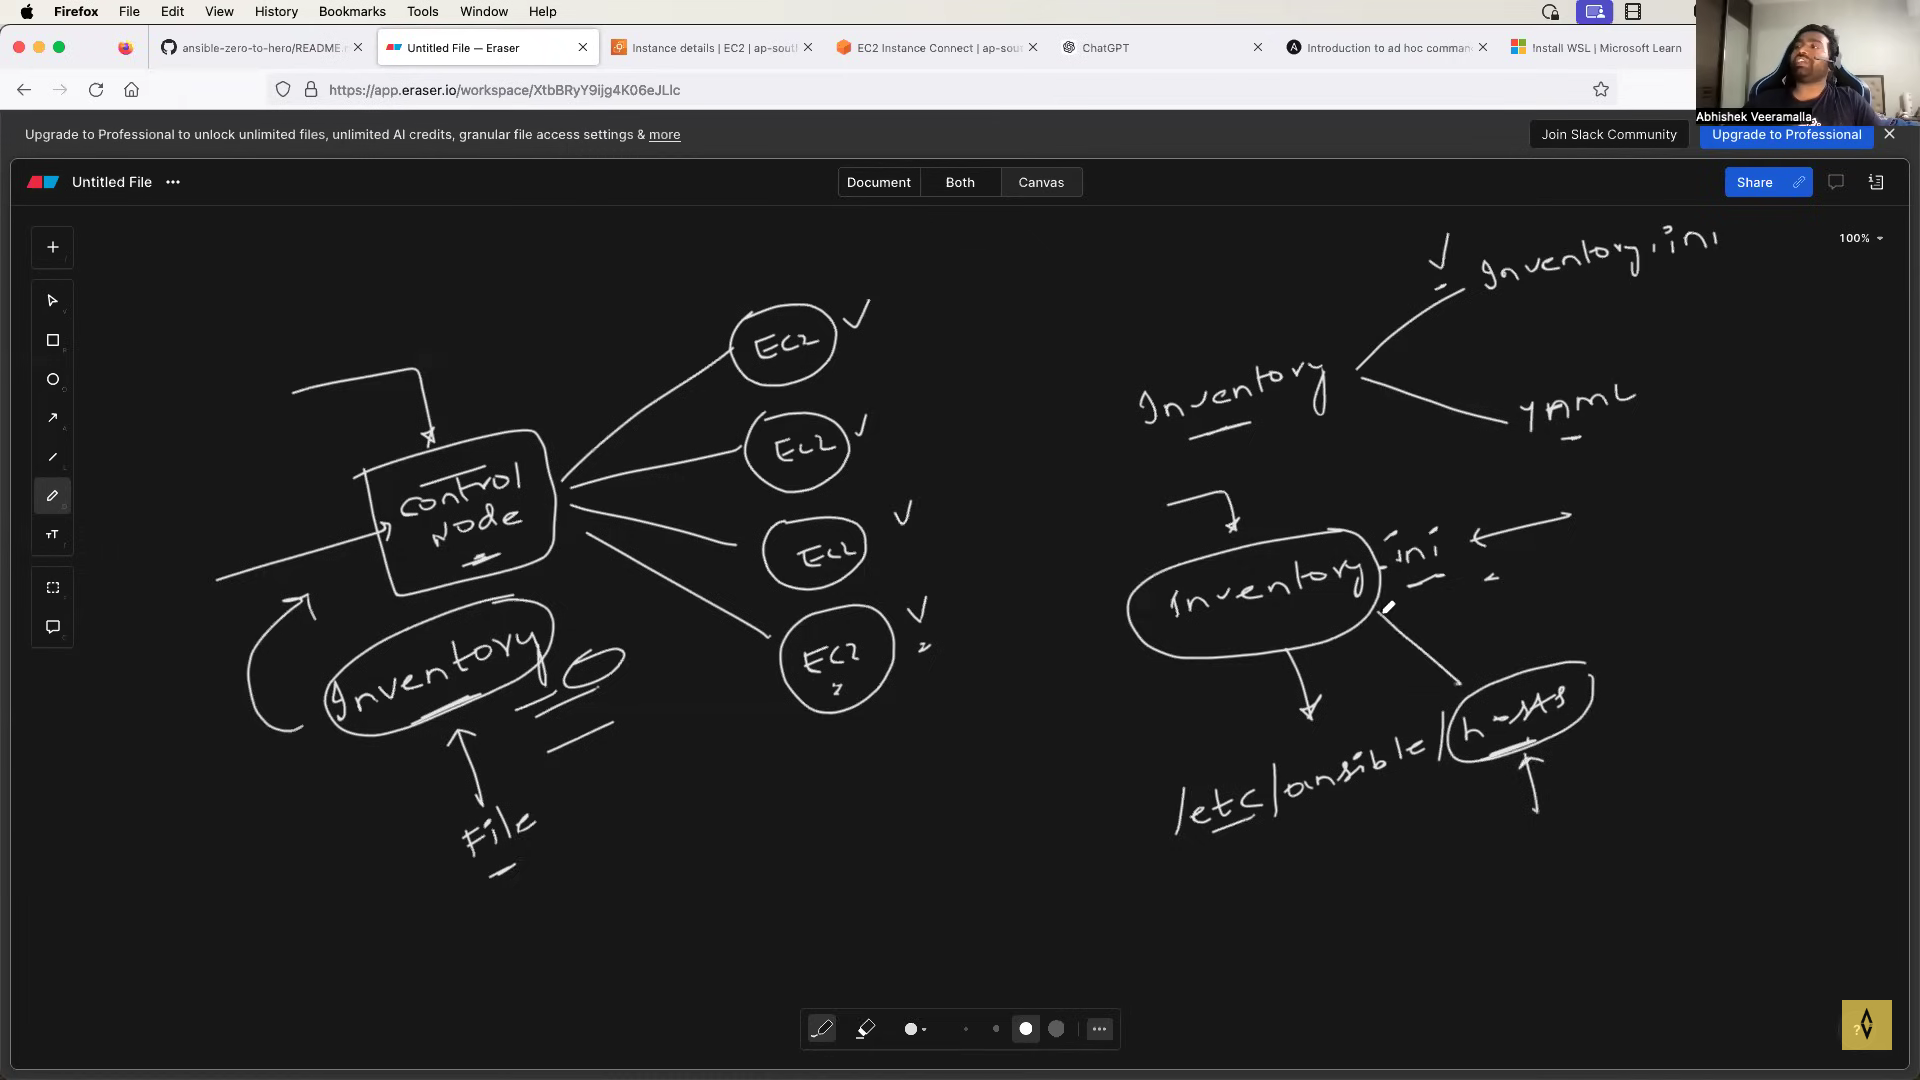 Firefox File Edit View History Bookmarks Tools Window Help
ansible-zero-to-hero/README.
Untitled File — Eraser
Instance details | EC2 | ap-sout
EC2 Instance Connect | ap-sou
ChatGPT
Introduction to ad hoc comman
Install WSL | Microsoft Learn
https://app.eraser.io/workspace/XtbBRyY9ijg4K06eJLlc
Abhishek Veeramalla
Upgrade to Professional to unlock unlimited files, unlimited AI credits, granular file access settings & more
Join Slack Community
Upgrade to Professional
Untitled File
Document Both Canvas
Share
100%
Inventory.ini
EC2
Inventory
YAML
EC2
control
Node
EC2
Inventory.ini
EC2
Inventory
/etc/ansible/hosts
File